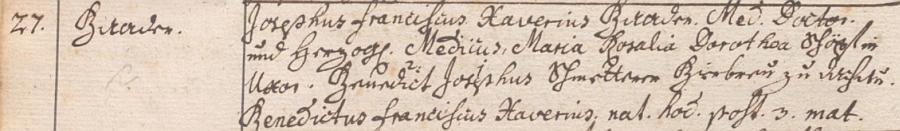 27. Zitader. Josephus Franciscus Xaverius Zitader. Med. Doctor.
und Herzogl. Medicus. Maria Rosalia Dorothea
Uxor. Benedict Josephus Schmetterer Bierbreu zu
Benedictus Franciscus Xaverius. nat. hod. post. 3. mat.